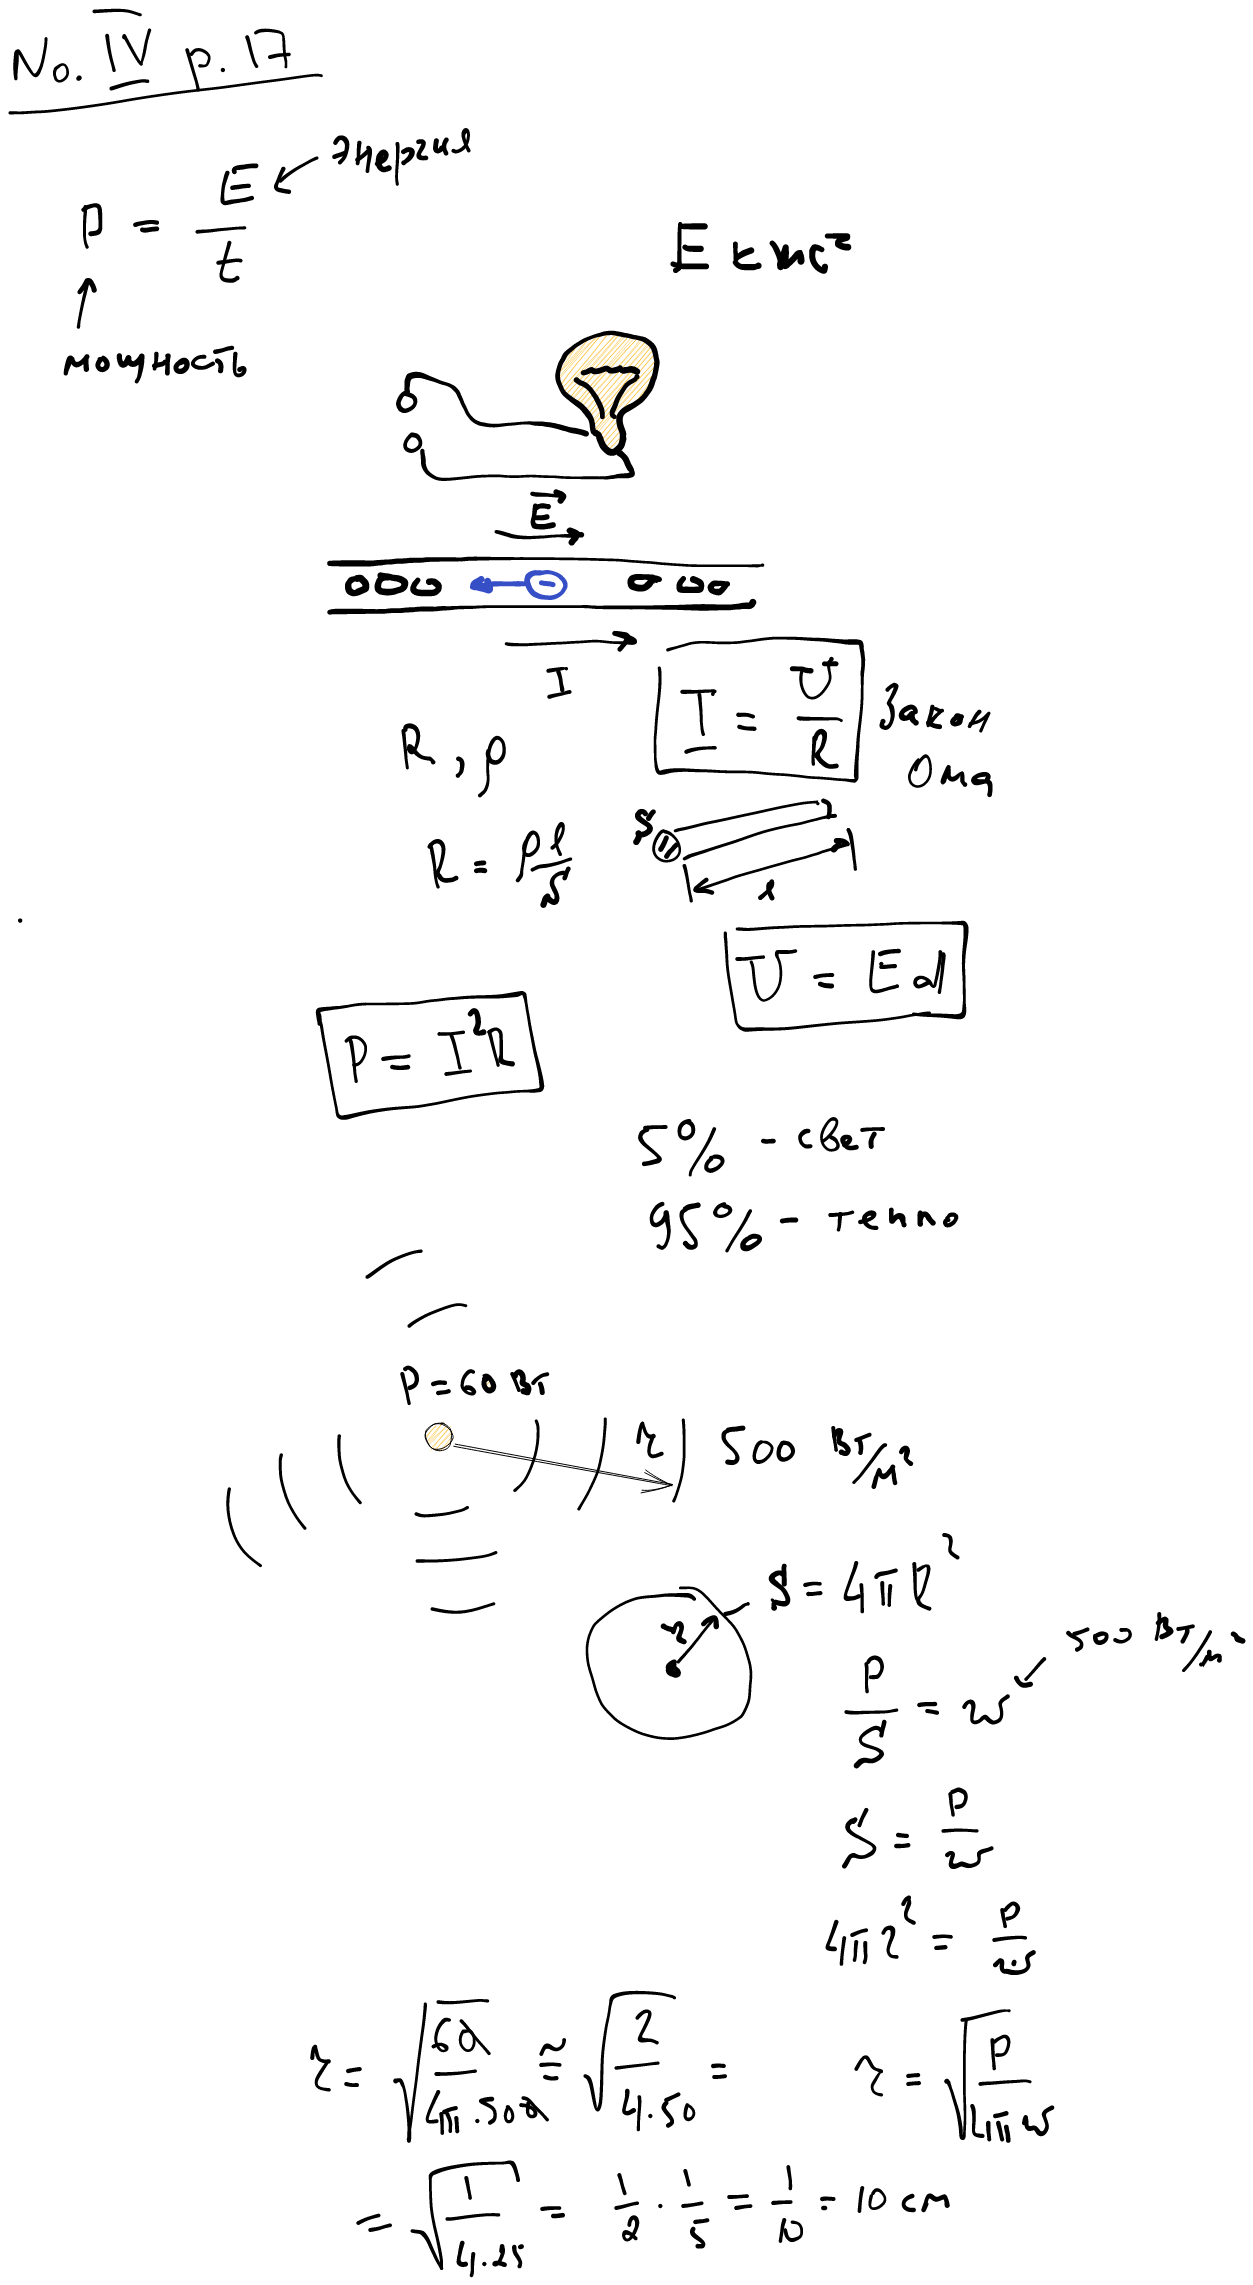 No. IV p. 17
P = E/t ← энергия
мощность
E = mc²
E
I
I = U/R Закон
Ома
R, ρ
R = ρl/S
S
l
U = Ed
P = I²R
5% - свет
95% - тепло
P = 60 Вт
r 500 Вт/м²
S = 4πR²
r
P/S = w ← 500 Вт/м²
S = P/w
4πr² = P/w
r = √(60/4π·500) ≅ √(2/4·50) =
r = √(P/4πw)
= √(1/4·25) = 1/2 · 1/5 = 1/10 = 10 см